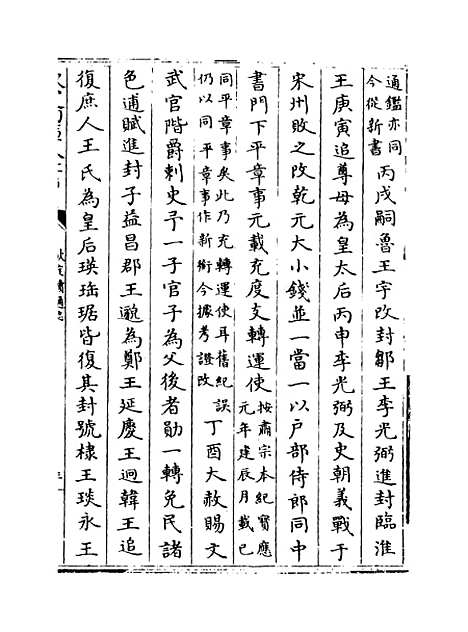 通鑑亦同
今從新書
丙戌嗣魯王宇改封鄒王李光弼進封臨淮
王庚寅追尊母為皇太后丙申李光弼及史朝義戰于
宋州敗之改乾元大小錢並一當一以戶部侍郎同中
書門下平章事元載充度支轉運使
按肅宗本紀寶應
元年建辰月載已
同平章事矣此乃充轉運使耳舊紀誤
仍以同平章事作新銜今據考證改
丁酉大赦賜文
武官階爵刺史予一子官子為父後者勛一轉免民諸
色逋賦進封子益昌郡王邈為鄭王延慶王迥韓王追
復庶人王氏為皇后瑛瑤琚皆復其封號棣王琰永王
欽定續通志